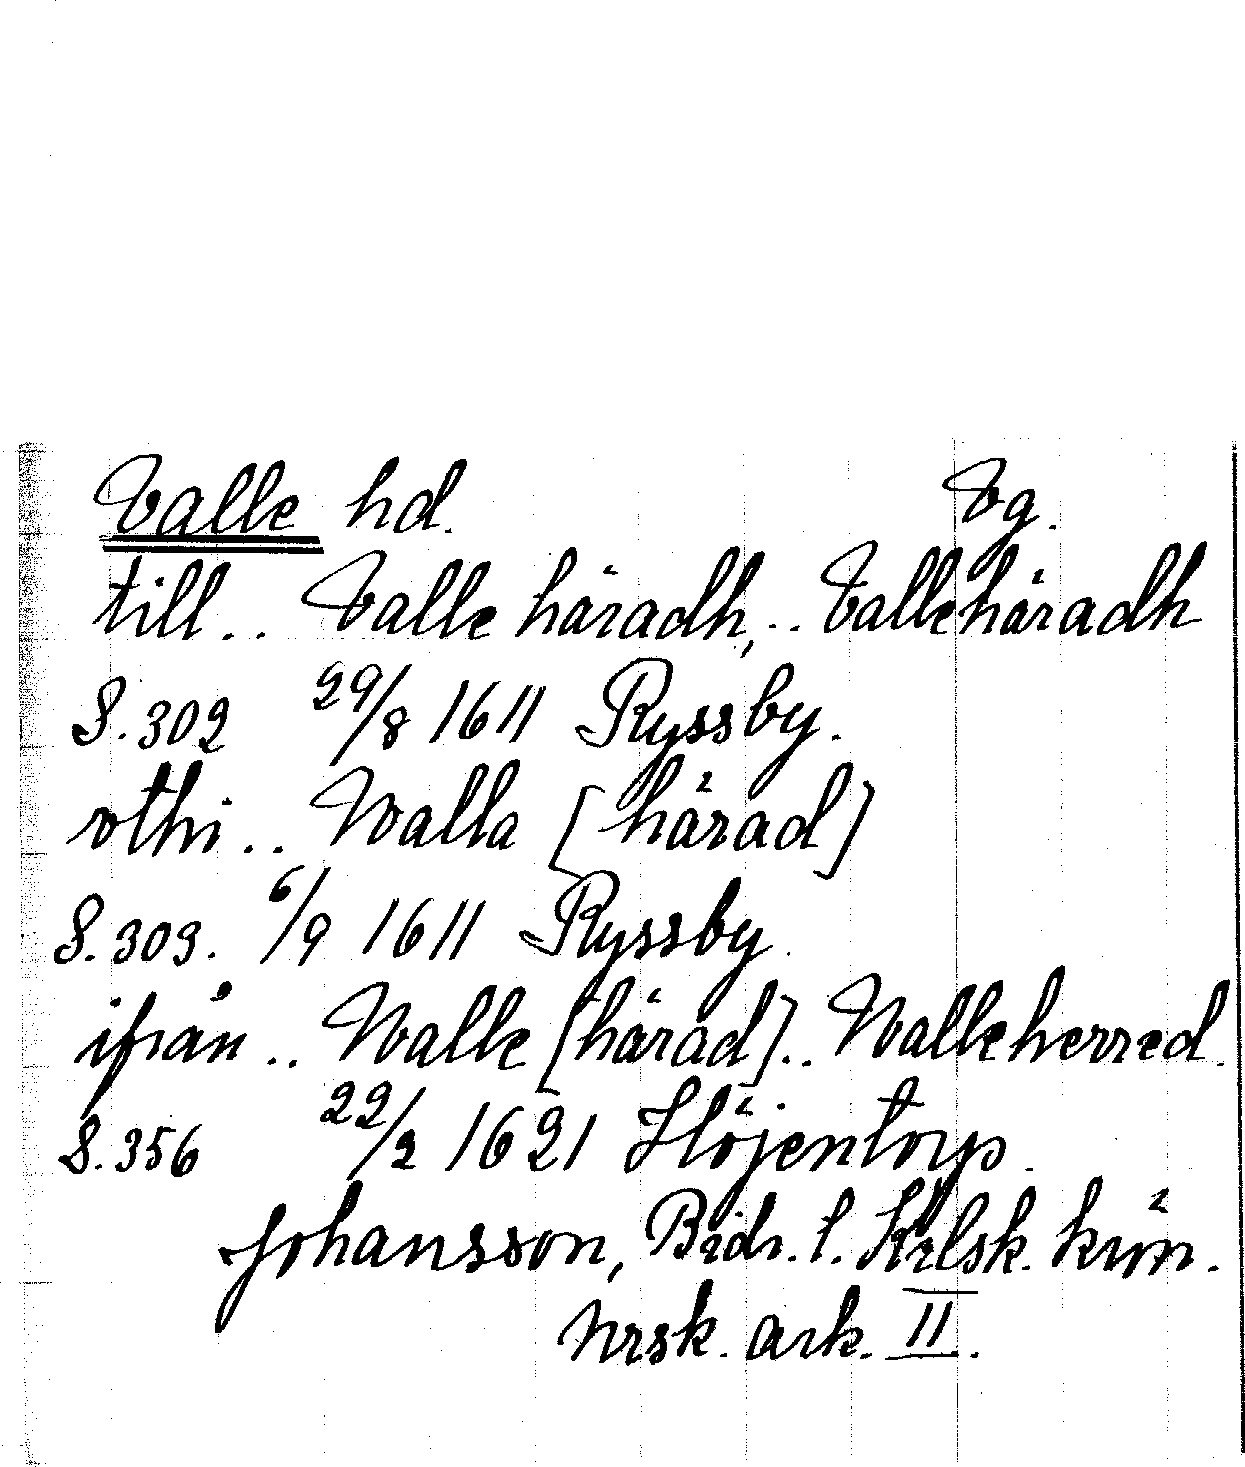 Valle hd. Vg.
till.. Valle häradh, .. Vallehäradh
S. 302 29/8 1611 Ryssby.
vthi .. Walla [härad]
S. 303. 6/9 1611 Ryssby.
ifrån .. Walle [härad] .. Walleherred.
S. 356 22/2 1621 Höjentorp.
Johansson, Bidr. t. Krlsk. kun.
hrsk. ark. II.